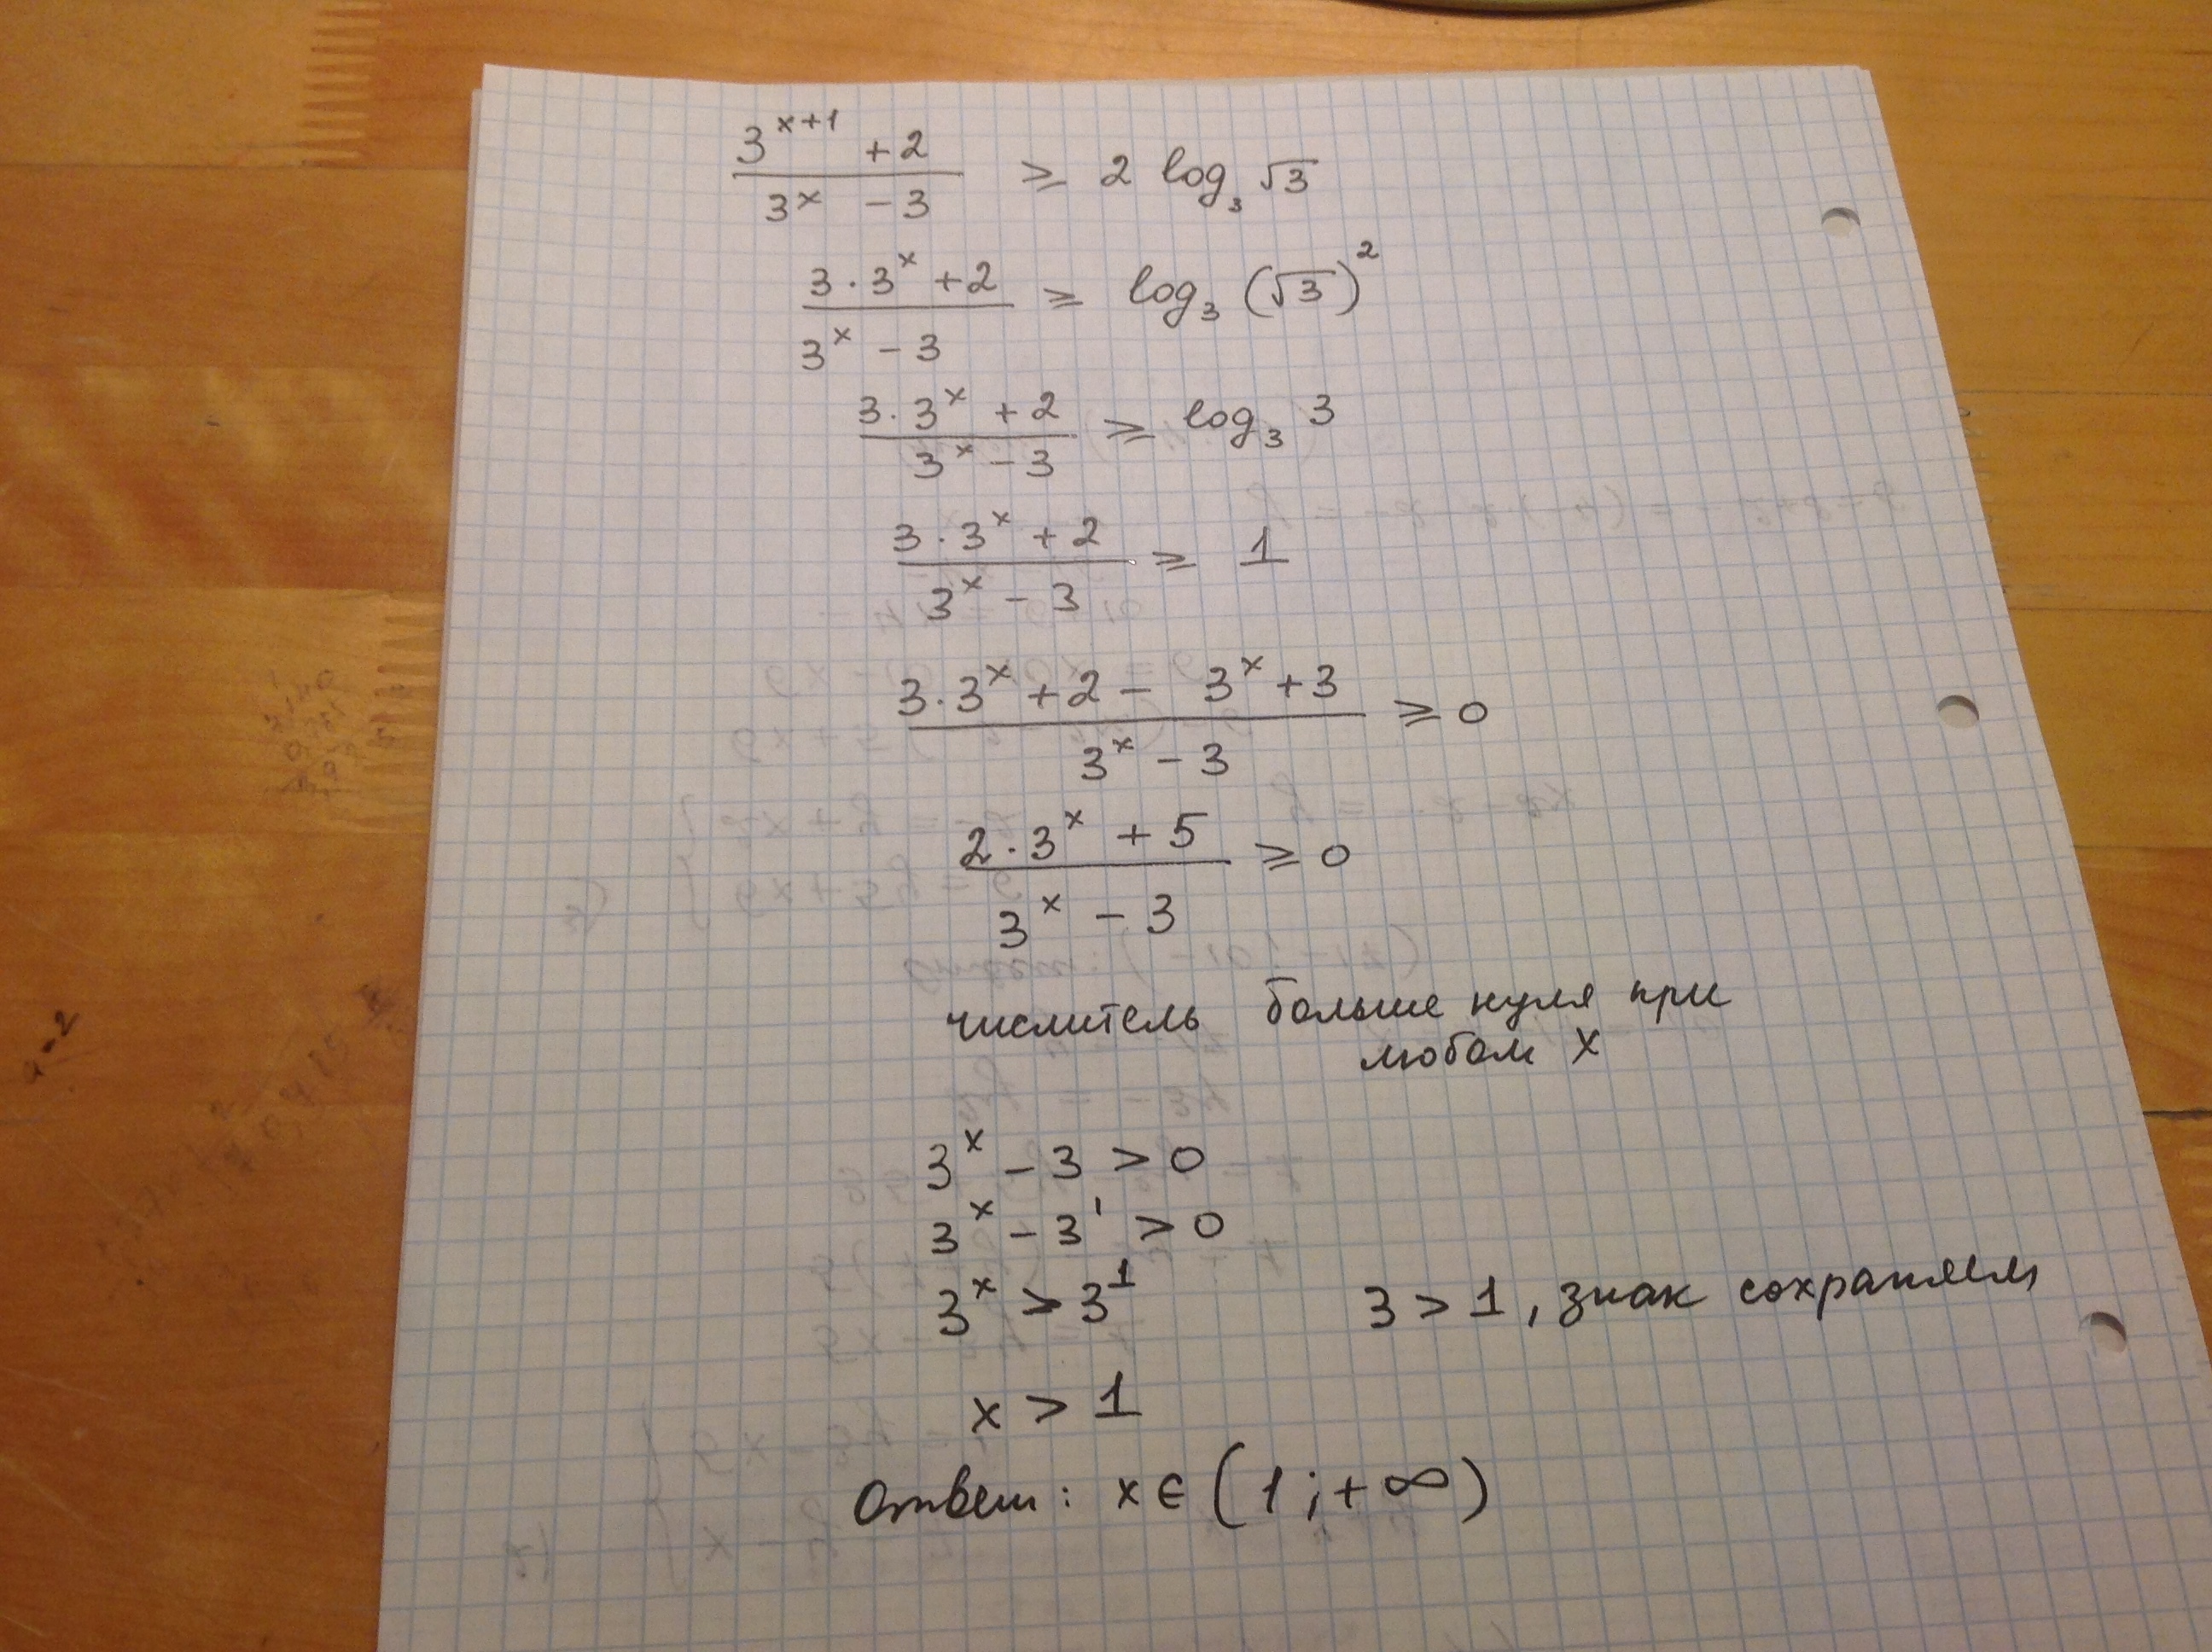 3^(x+1) + 2 / 3^x - 3 ⩾ 2 log_3 √3
3 · 3^x + 2 / 3^x - 3 ⩾ log_3 (√3)^2
3 · 3^x + 2 / 3^x - 3 ⩾ log_3 3
3 · 3^x + 2 / 3^x - 3 ⩾ 1
3 · 3^x + 2 - 3^x + 3 / 3^x - 3 ⩾ 0
2 · 3^x + 5 / 3^x - 3 ⩾ 0
числитель больше нуля при
любом x
3^x - 3 > 0
3^x - 3^1 > 0
3^x > 3^1 3 > 1, знак сохраняем
x > 1
Ответ: x ∈ (1; +∞)
a-2